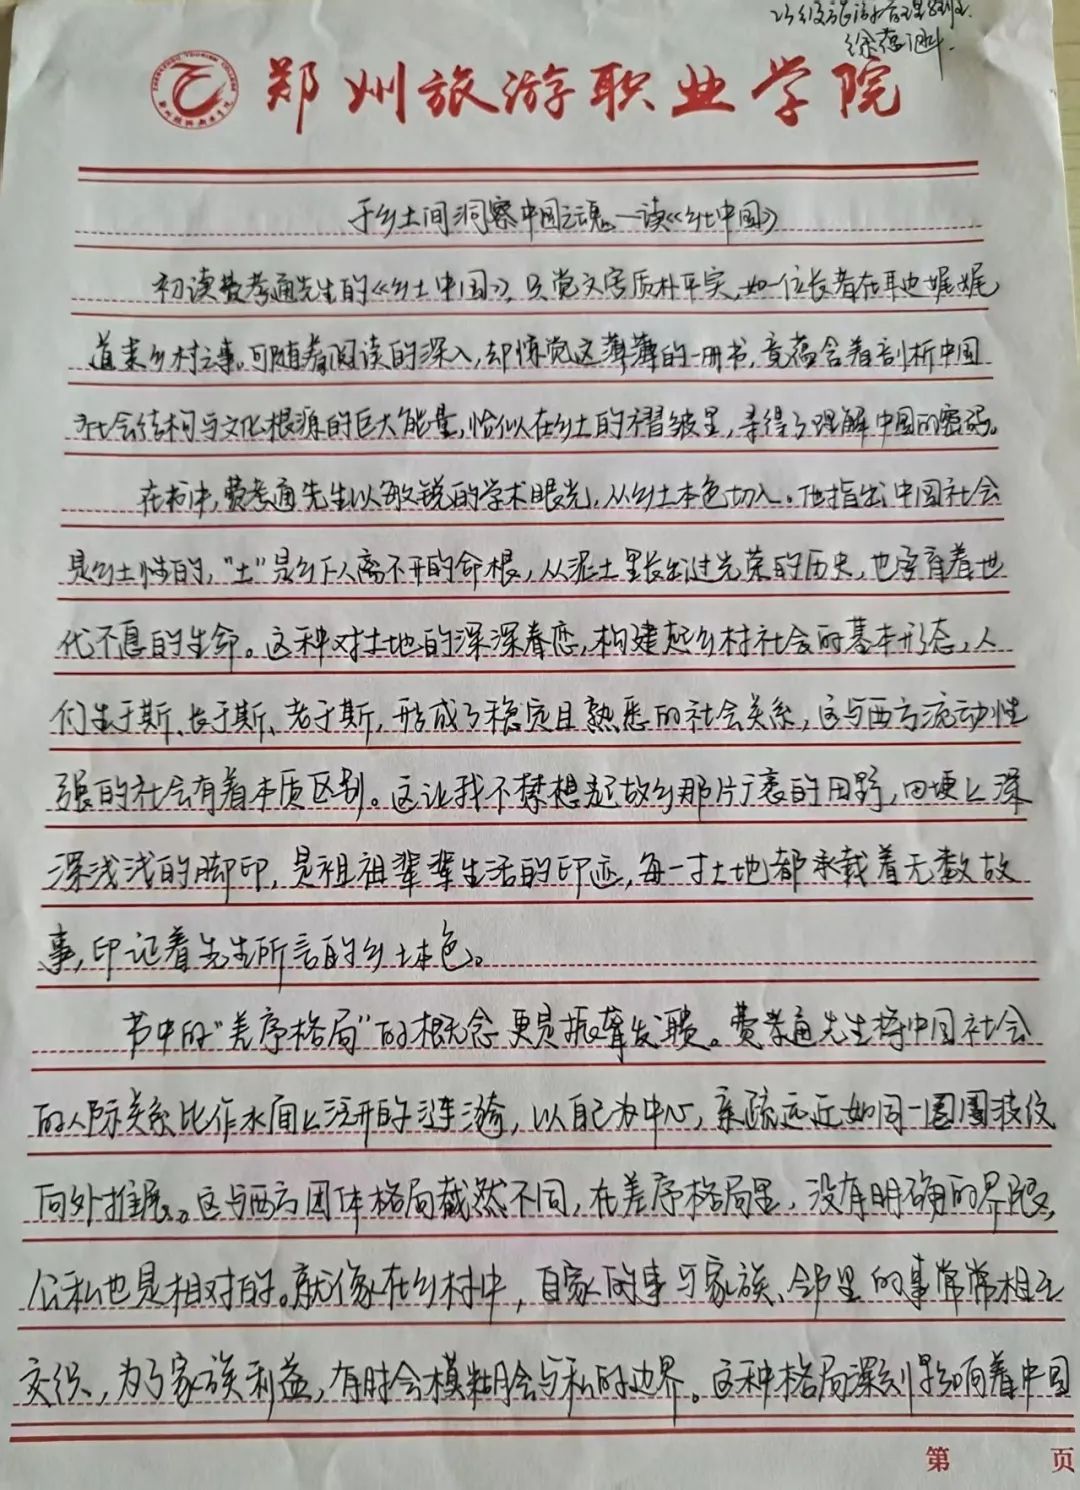 级旅游管理班
徐
郑州旅游职业学院
于乡土间洞察中国之魂—读《乡土中国》
初读费孝通先生的《乡土中国》,只觉文字质朴平实,如一位长者在耳边娓娓
道来乡村之事。可随着阅读的深入,却惊觉这薄薄的一册书,竟蕴含着剖析中国
社会结构与文化根源的巨大能量,恰似在乡土的褶皱里,寻得了理解中国的密码。
在书中,费孝通先生以敏锐的学术眼光,从乡土本色切入。他指出中国社会
是乡土性的,“土”是乡下人离不开的命根,从泥土里长出过光荣的历史,也孕育着世
代不息的生命。这种对土地的深深眷恋,构建起乡村社会的基本形态,人
们生于斯、长于斯、老于斯,形成了稳定且熟悉的社会关系,这与西方流动性
强的社会有着本质区别。这让我不禁想起故乡那片广袤的田野,田埂上深
深浅浅的脚印,是祖祖辈辈生活的印迹,每一寸土地都承载着无数故
事,印证着先生所言的乡土本色。
书中的“差序格局”的概念更是振聋发聩。费孝通先生将中国社会
的人际关系比作水面上泛开的涟漪,以自己为中心,亲疏远近如同一圈圈波纹
向外推展。这与西方团体格局截然不同,在差序格局里,没有明确的界限,
公私也是相对的。就像在乡村中,自家的事与家族、邻里的事常常相互
交织,为了家族利益,有时会模糊公与私的边界。这种格局深刻影响着中国
第 页